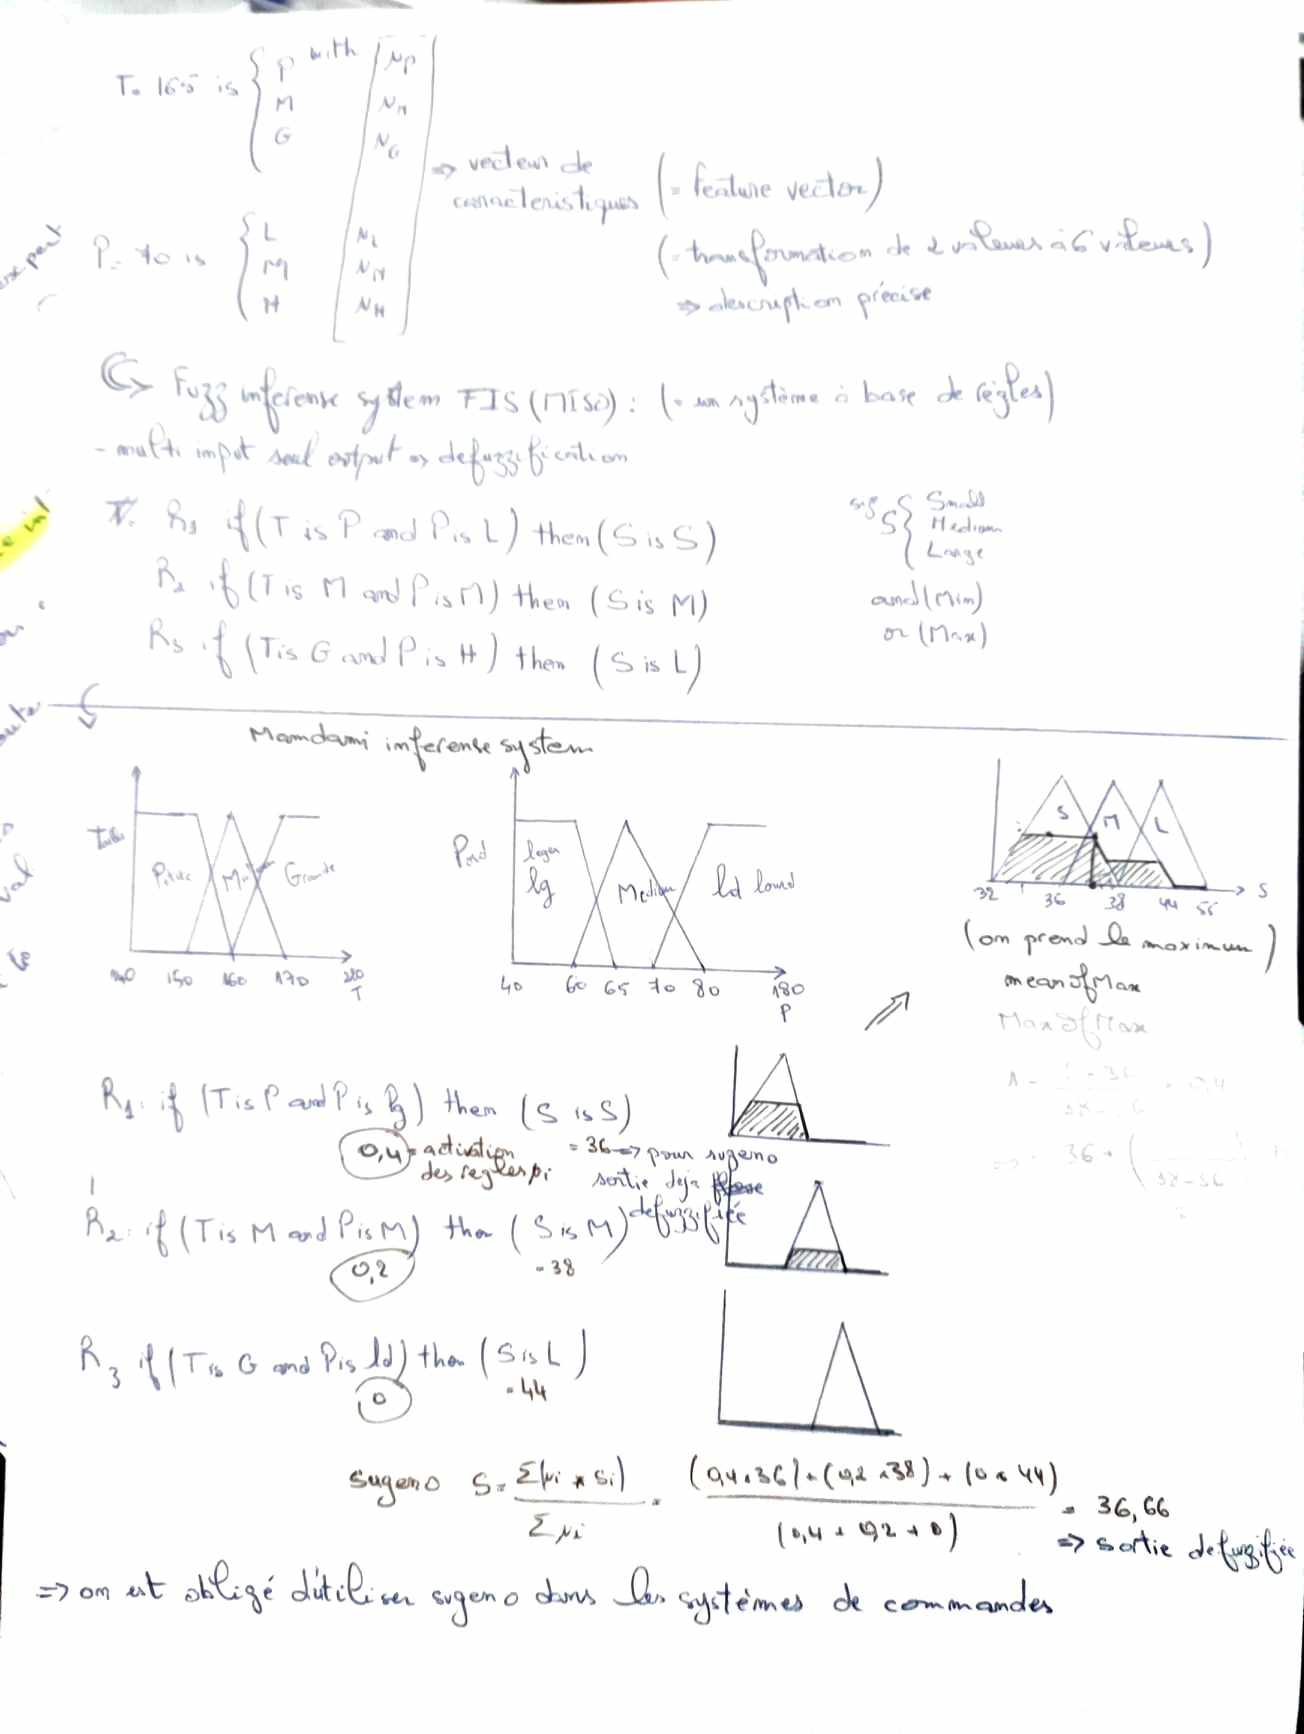 T. 165 is { P with μP
M μM
G μG
⇒ vecteur de
caracteristiques (= feature vector)
P= 70 is { L μL
M μM
H μH
(= transformation de 2 valeurs à 6 valeurs)
⇒ description précise
expert
Fuzz inferense system FIS (MISO) : (= un système à base de règles)
- multi input seul output ⇒ defuzzification
R1 if (T is P and P is L) then (S is S)
S { Small
Medium
Large
R2 if (T is M and P is M) then (S is M)
and (Min)
R3 if (T is G and P is H) then (S is L)
or (Max)
Mamdami inferense system
Petite M Grande
140 150 160 170 210
T
Poid leger lg Medium ld lourd
40 60 65 70 80 180
P
S M L
32 36 38 44 55 S
(on prend le maximum)
mean of Max
Max of Max
R1: if (T is P and P is lg) then (S is S)
0,4 = activation
des regles μi
= 36 ⇒ pour sugeno
sortie deja
defuzzifiée
R2: if (T is M and P is M) then (S is M)
0,2 = 38
R3 if (T is G and P is ld) then (S is L)
0 = 44
sugeno S = Σ(μi * Si) / Σμi = (0,4 × 36) + (0,2 × 38) + (0 × 44) / (0,4 + 0,2 + 0) = 36,66
⇒ sortie defuzzifiée
⇒ on est obligé d'utiliser sugeno dans les systèmes de commandes